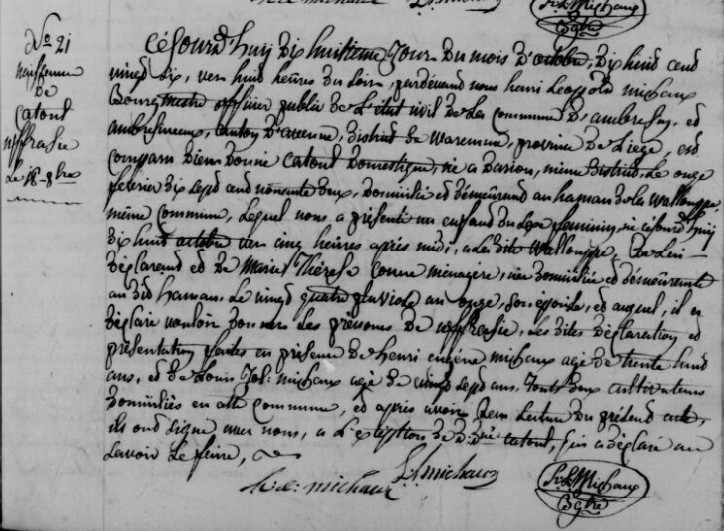 N° 21
naissance
de
Catoul
uffrasie
Le 18 - 8bre
Céjourd'huy dix huitieme Jour du mois d'octobre, dix huid cend
vingd dix, vers huid heures du soire, pardevand nous henri Leopold michaux
Bourgmestre officier publix de L'étad civil de La commune d'ambresin, ed
ambresineaux, canton d'avenne, district de Waremme, province de Liege, est
comparu Dieu donné Catoul Domestique, né a Darion, même District, Le onze
fevrier dix sepd cend nonante deux, domicilié ed démeurand au hameau de la Wallouppe
même commune, Lequel nous a présenté un enfand du sexe féminin, né céjourd'huy
dix huid octobre vers cinq heures après midi, a La dite Wallouppe, de Lui -
déclarend ed de Marie Thérese ménagère, née domiciliée ed démeurante
au dit hameau, Le vingd quatre pluviose an onze, son epouse, ed auquel, il a
déclaré vouloir donner Les prénoms de uffrasie, Les dites déclaration ed
présentation faites en présence de henri eugéne michaux agé de trente huid
ans, ed de Louis Jos: michaux agé de vingd sepd ans, touts deux cultivateurs
domiciliés en cette commune, ed après avoir Lecture du présend acte,
ils ond signé avec nous, a L'exception de D: Dné Catoul, qui a déclaré ne
savoir Le faire,
h. e: michaux
L J michaux
h L Michaux
Bgtre